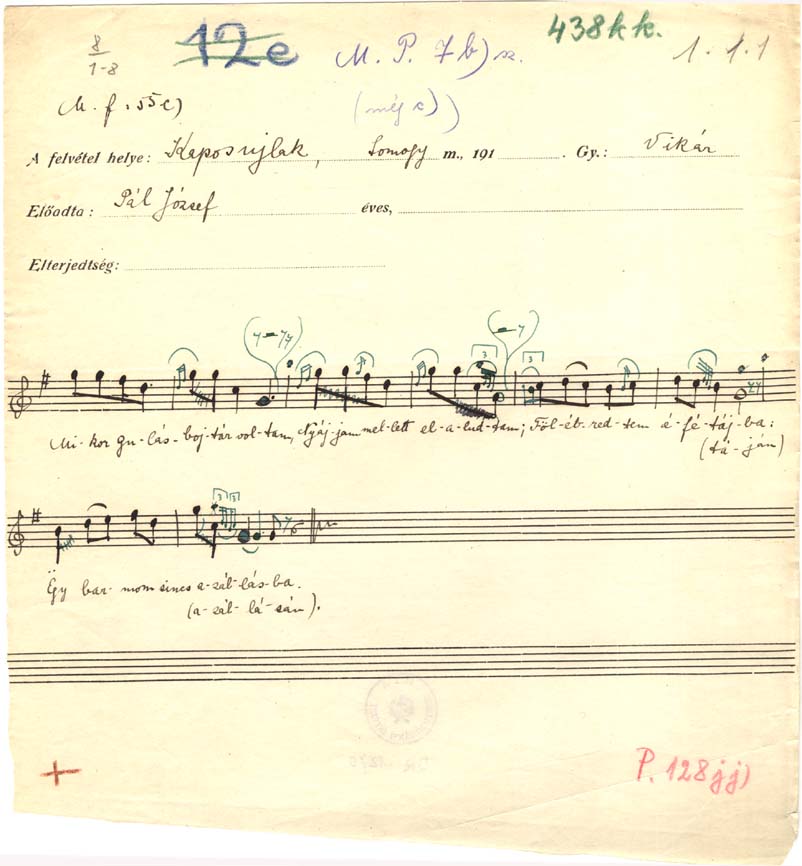 8/1-8 12e M. P. 7b) sz. 438kk. 1. 1. 1
M. f. 55c) (még c))
A felvétel helye: Kaposujlak, Somogy m., 191 . Gy.: Vikár
Előadta: Pál József éves,
Elterjedtség:
Mi-kor gu-lás-boj-tár vol-tam, Nyáj-jam mel-lett el-a-lud-tam; Föl-éb-red-tem é-fé-táj-ba:
(tá-ján)
Egy bar-mom sincs a-zál-lás-ba.
(a-zál-lá-sán).
P. 128jj)